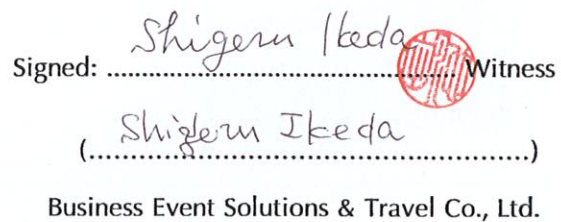 Shigeru Ikeda
Signed: ............................................................ Witness
Shigeru Ikeda
(............................................................)
Business Event Solutions & Travel Co., Ltd.